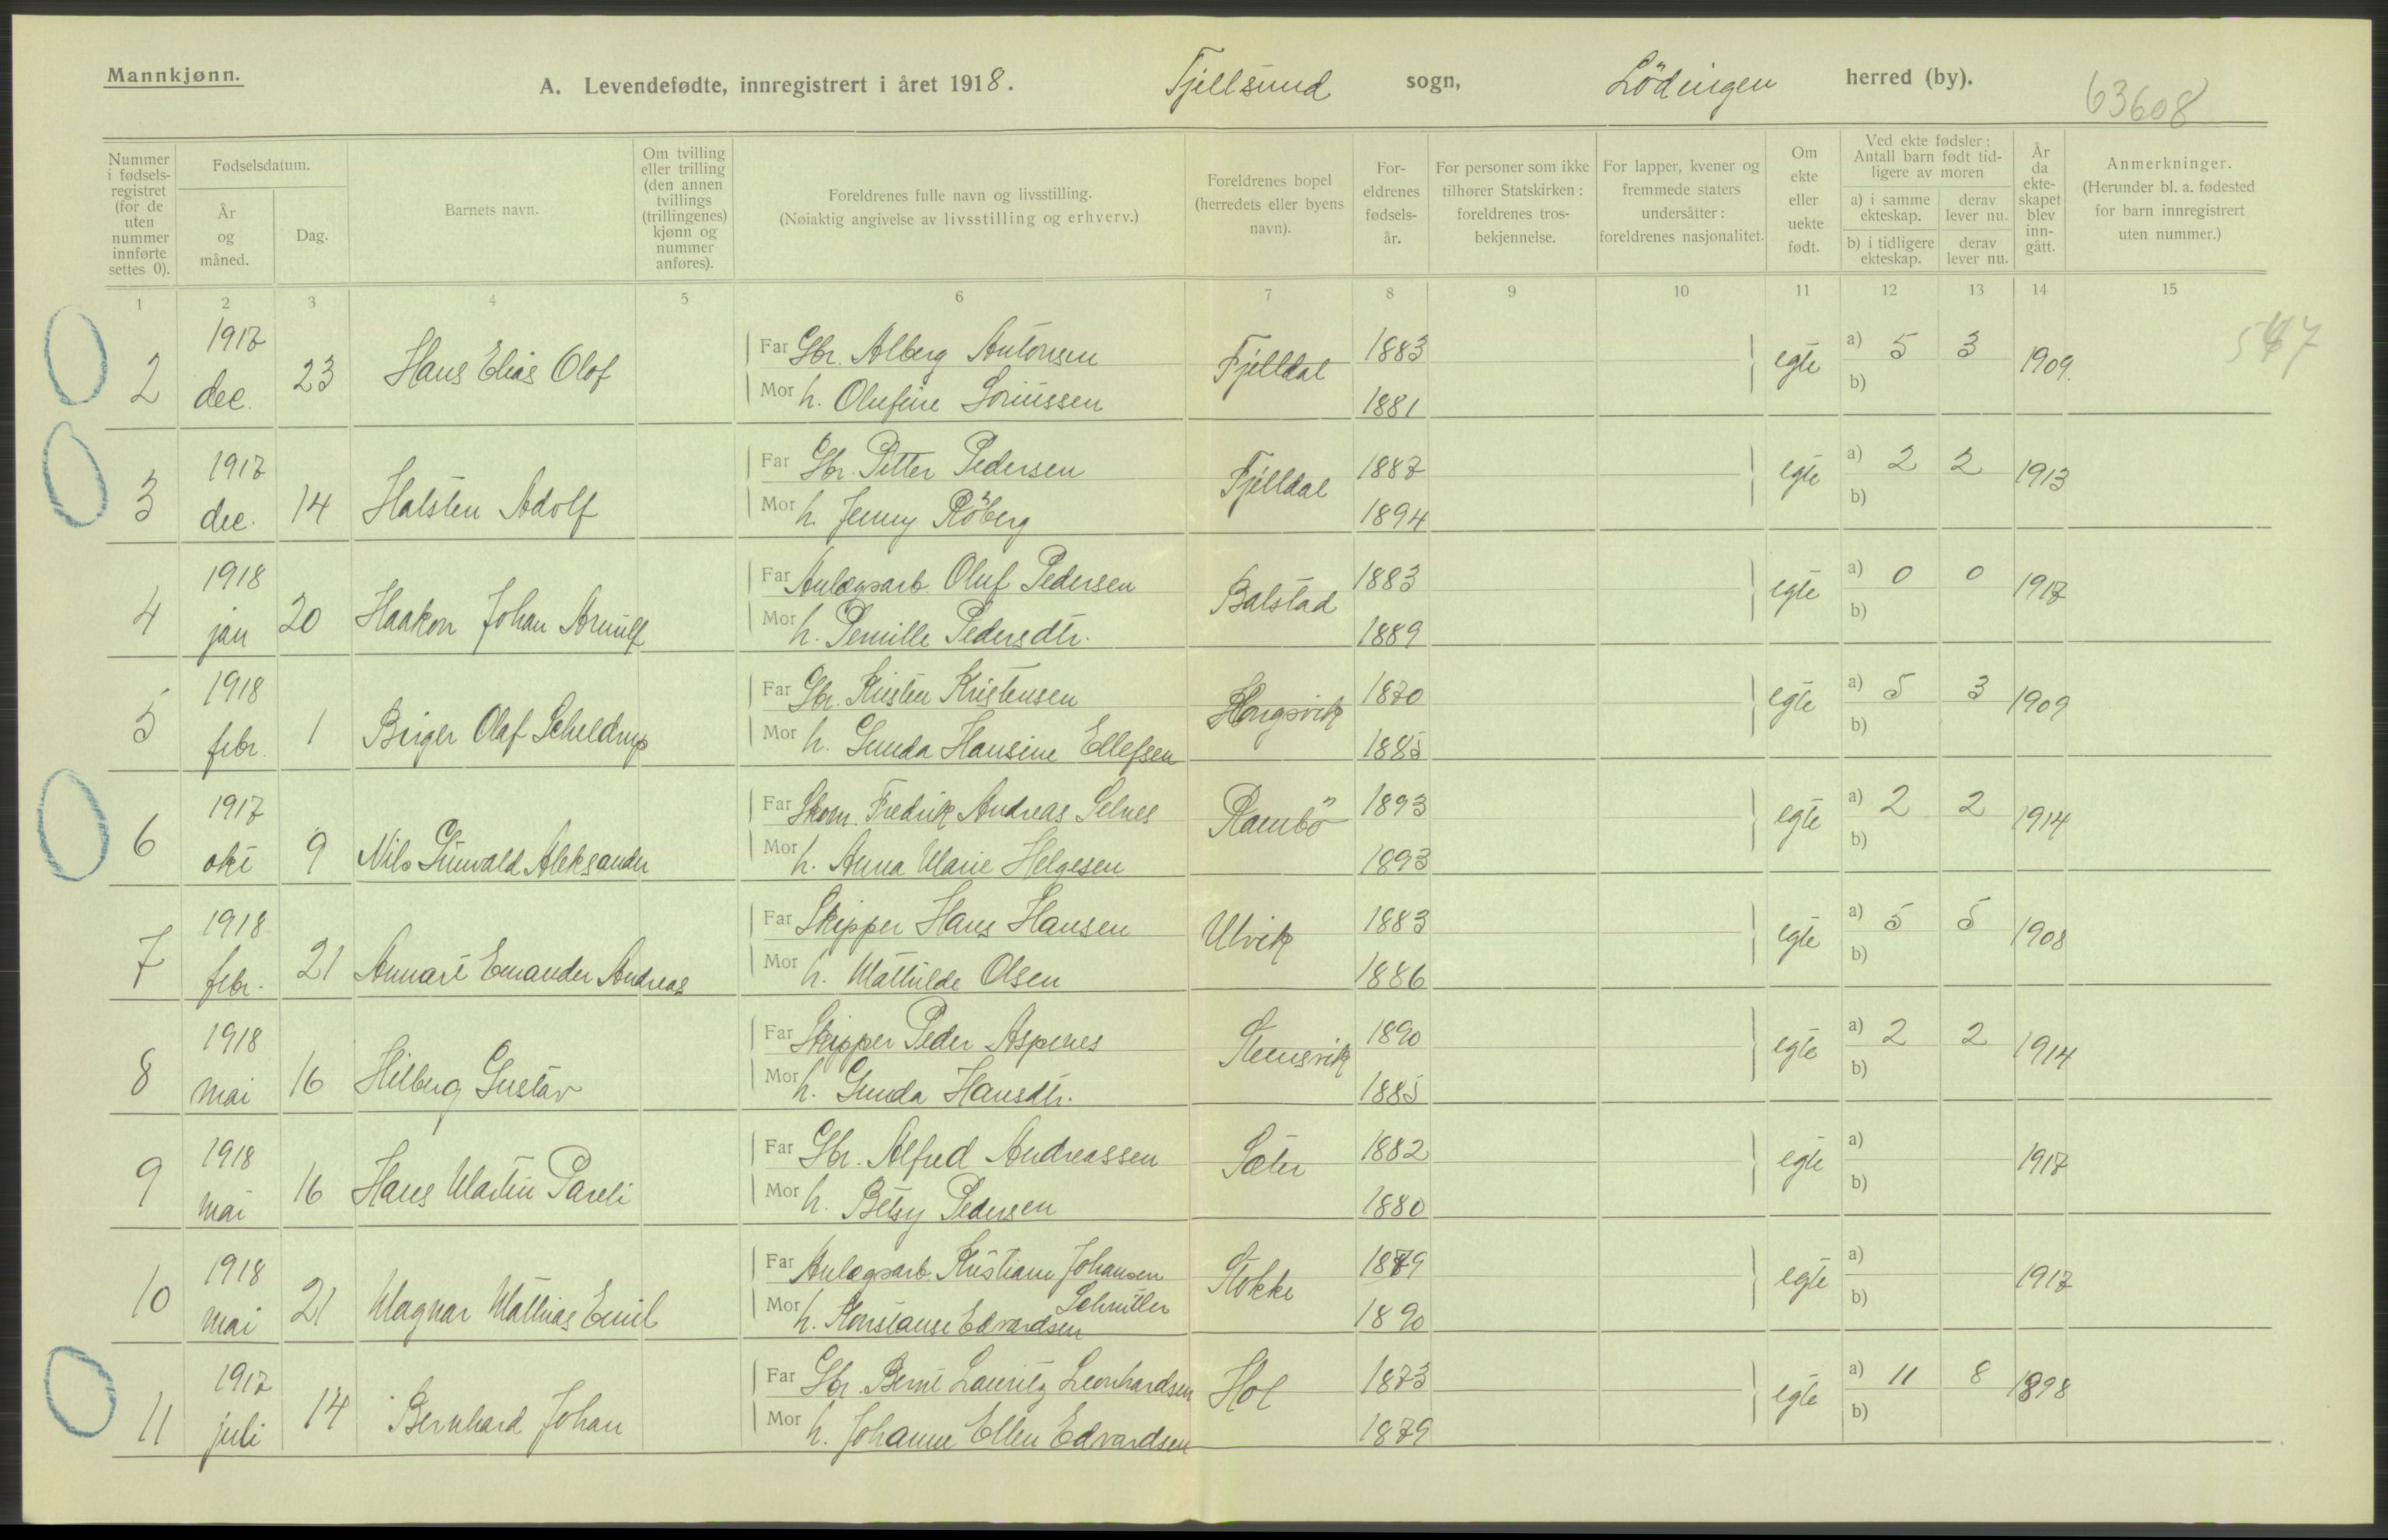 Mannkjønn.
A. Levendefødte, innregistrert i året 1918. Fjellsund sogn, Lödingen herred (by).
63608
Nummer i fødsels-registret (for de uten nummer innførte settes 0).
Fødselsdatum.
År og måned.
Dag.
Barnets navn.
Om tvilling eller trilling (den annen tvillings (trillingenes) kjønn og nummer anføres).
Foreldrenes fulle navn og livsstilling.
(Nøiaktig angivelse av livsstilling og erhverv.)
Foreldrenes bopel (herredets eller byens navn).
For-eldrenes fødsels-år.
For personer som ikke tilhører Statskirken: foreldrenes tros-bekjennelse.
For lapper, kvener og fremmede staters undersåtter: foreldrenes nasjonalitet.
Om ekte eller uekte født.
Ved ekte fødsler: Antall barn født tid-ligere av moren
a) i samme ekteskap. derav lever nu.
b) i tidligere ekteskap. derav lever nu.
År da ekte-skapet blev inn-gått.
Anmerkninger.
(Herunder bl. a. fødested for barn innregistrert uten nummer.)
1 2 3 4 5 6 7 8 9 10 11 12 13 14 15
2 1917 dec. 23 Hans Elias Olof Far Gbr. Alberg Antonsen Fjelldal 1883 egte a) 5 3 1909.
Mor h. Olufine Soriussen 1881 b)
3 1917 dec. 14 Halsten Adolf Far Gbr. Petter Pedersen Fjelldal 1887 egte a) 2 2 1913
Mor h. Jenny Röberg 1894 b)
4 1918 jan 20 Haakon Johan Arnulf Far Anlægsarb. Oluf Pedersen Balstad 1883 egte a) 0 0 1917
Mor h. Pernille Pedersdtr. 1889 b)
5 1918 febr. 1 Birger Olaf Scheldrup Far Gbr. Kristen Kristensen Kongsvik 1870 egte a) 5 3 1909
Mor h. Gunda Hansine Ellefsen 1885 b)
6 1917 okt 9 Nils Gunvald Aleksander Far Skom. Fredrik Andreas Selnes Rambö 1893 egte a) 2 2 1914
Mor h. Anna Marie Helgesen 1893 b)
7 1918 febr. 21 Annart Emander Andreas Far Skipper Hans Hansen Ulvik 1883 egte a) 5 5 1908
Mor h. Mathilde Olsen 1886 b)
8 1918 mai 16 Hilberg Gustav Far Skipper Peder Aspenes Stensvik 1890 egte a) 2 2 1914
Mor h. Gunda Hansdtr. 1885 b)
9 1918 mai 16 Hans Martin Pareli Far Gbr. Alfred Andreassen Sæter 1882 egte a) 1917
Mor h. Betsy Pedersen 1880 b)
10 1918 mai 21 Magnar Mathias Emil Far Anlægsarb. Kristian Johansen Stokke 1879 egte a) 1917
Mor h. Konstanse Edvardsen 1890 b)
11 1917 juli 14 Bernhard Johan Far Gbr. Bernt Lauritz Leonhardsen Hol 1873 egte a) 11 8 1898
Mor h. Johanne Ellen Edvardsen 1879 b)